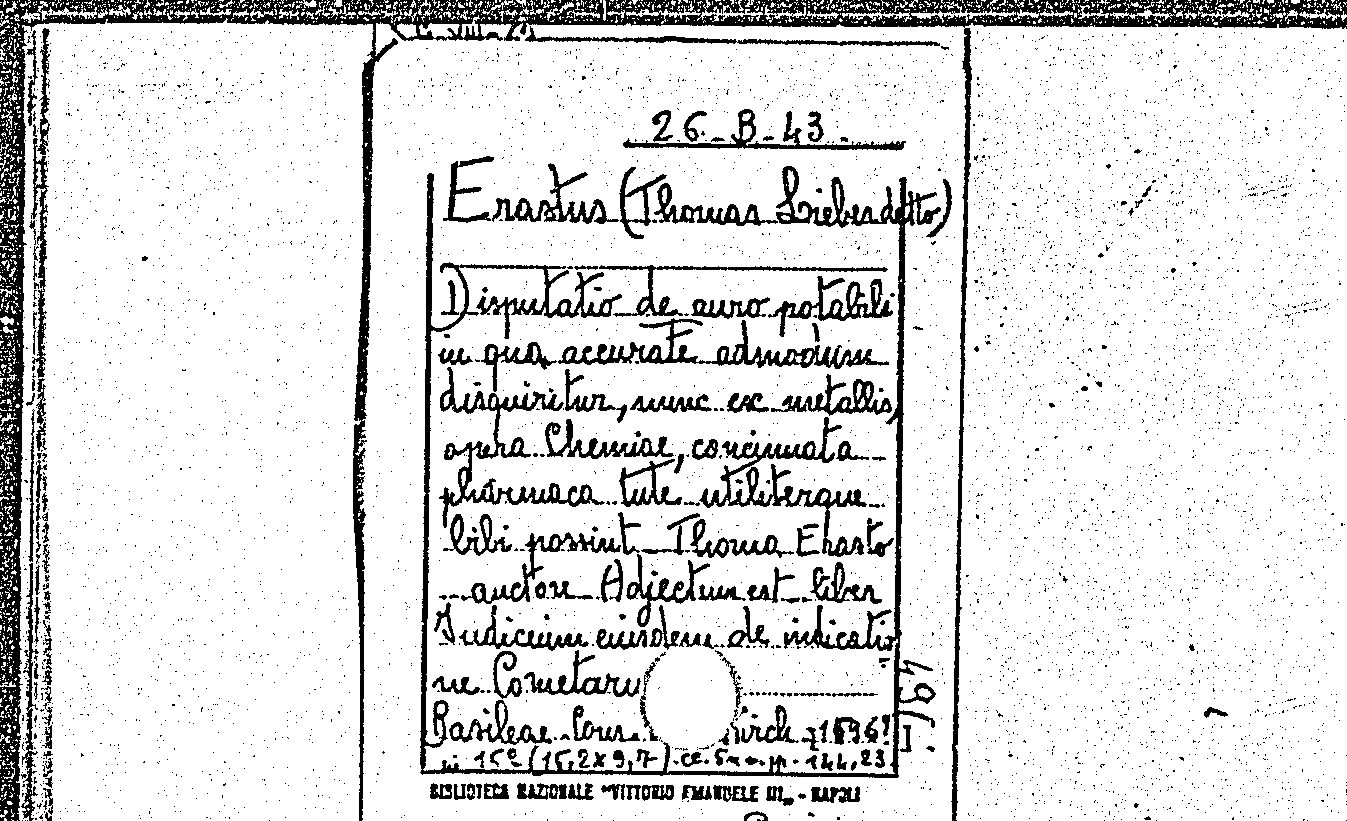 26. B. 43.
Erastus (Thomas Lieber detto)
Disputatio de auro potabili
in qua accurate admodum
disquiritur, nunc ex metallis,
opera Chemiae, concinnata
pharmaca tute utiliterque
bibi possint Thoma Erasto
auctore Adjectum est liber
Iudicium eiusdem de indicatio
ne Cometaru
Basileae
in 15° (15,2 x 9,7) cc. 5 pp. 144, 23.
BIBLIOTECA NAZIONALE "VITTORIO EMANUELE III" - NAPOLI